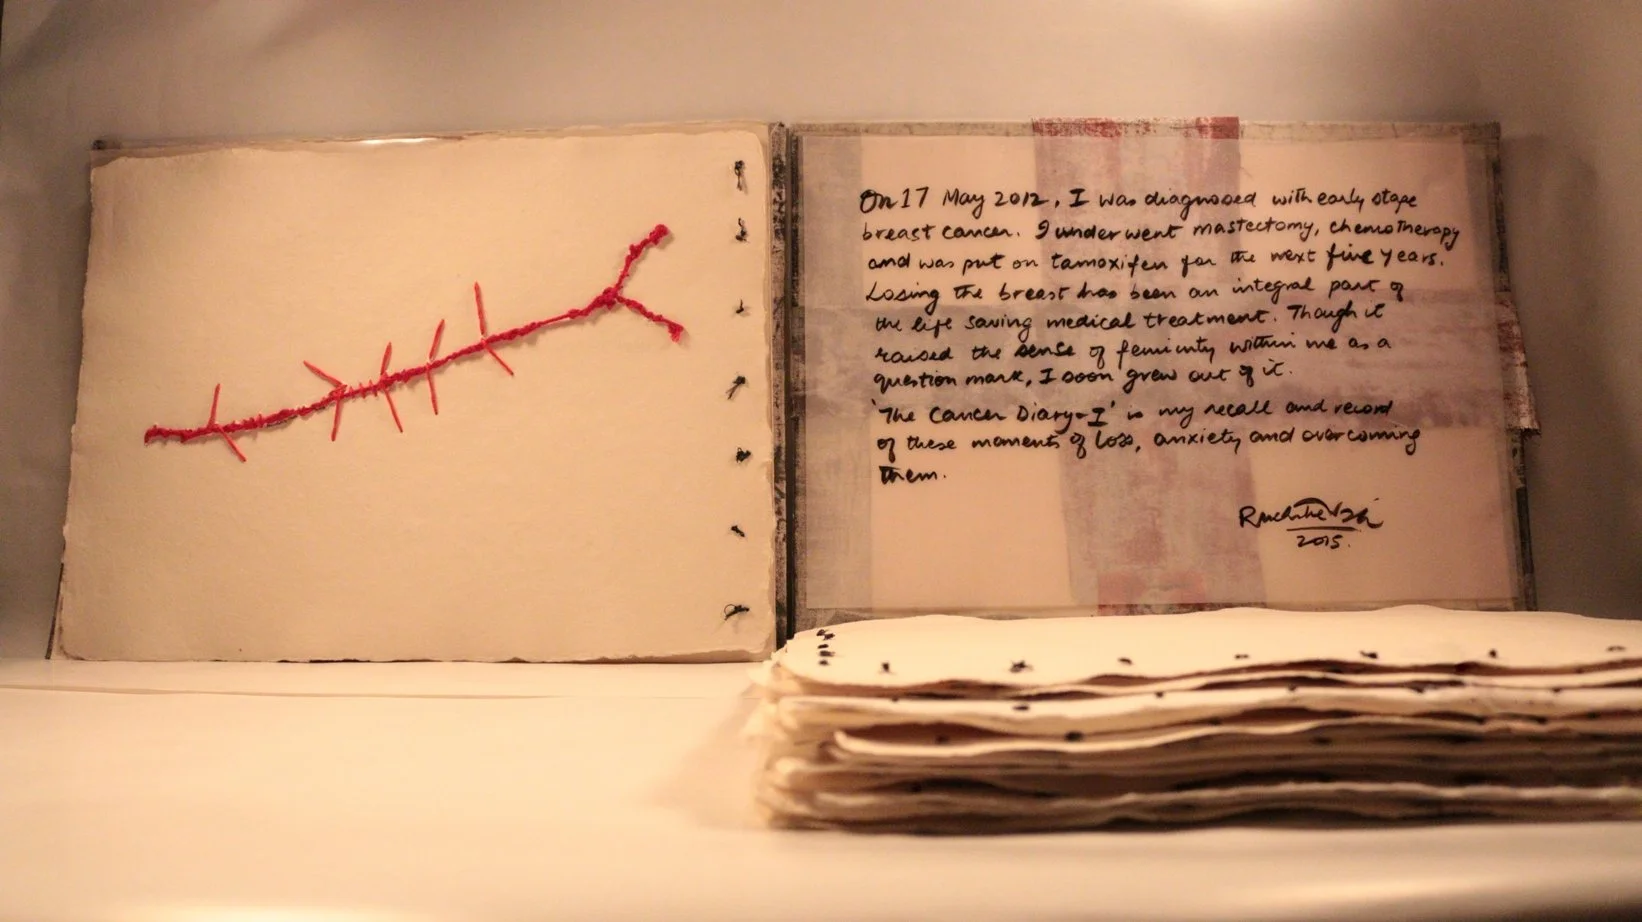 On 17 May 2012, I was diagnosed with early stage
breast cancer. I underwent mastectomy, chemotherapy
and was put on tamoxifen for the next five years.
Losing the breast has been an integral part of
the life saving medical treatment. Though it
raised the sense of feminity within me as a
question mark, I soon grew out of it.
'The Cancer Diary-I' is my recall and record
of these moments of loss, anxiety and overcoming
them.
2015.